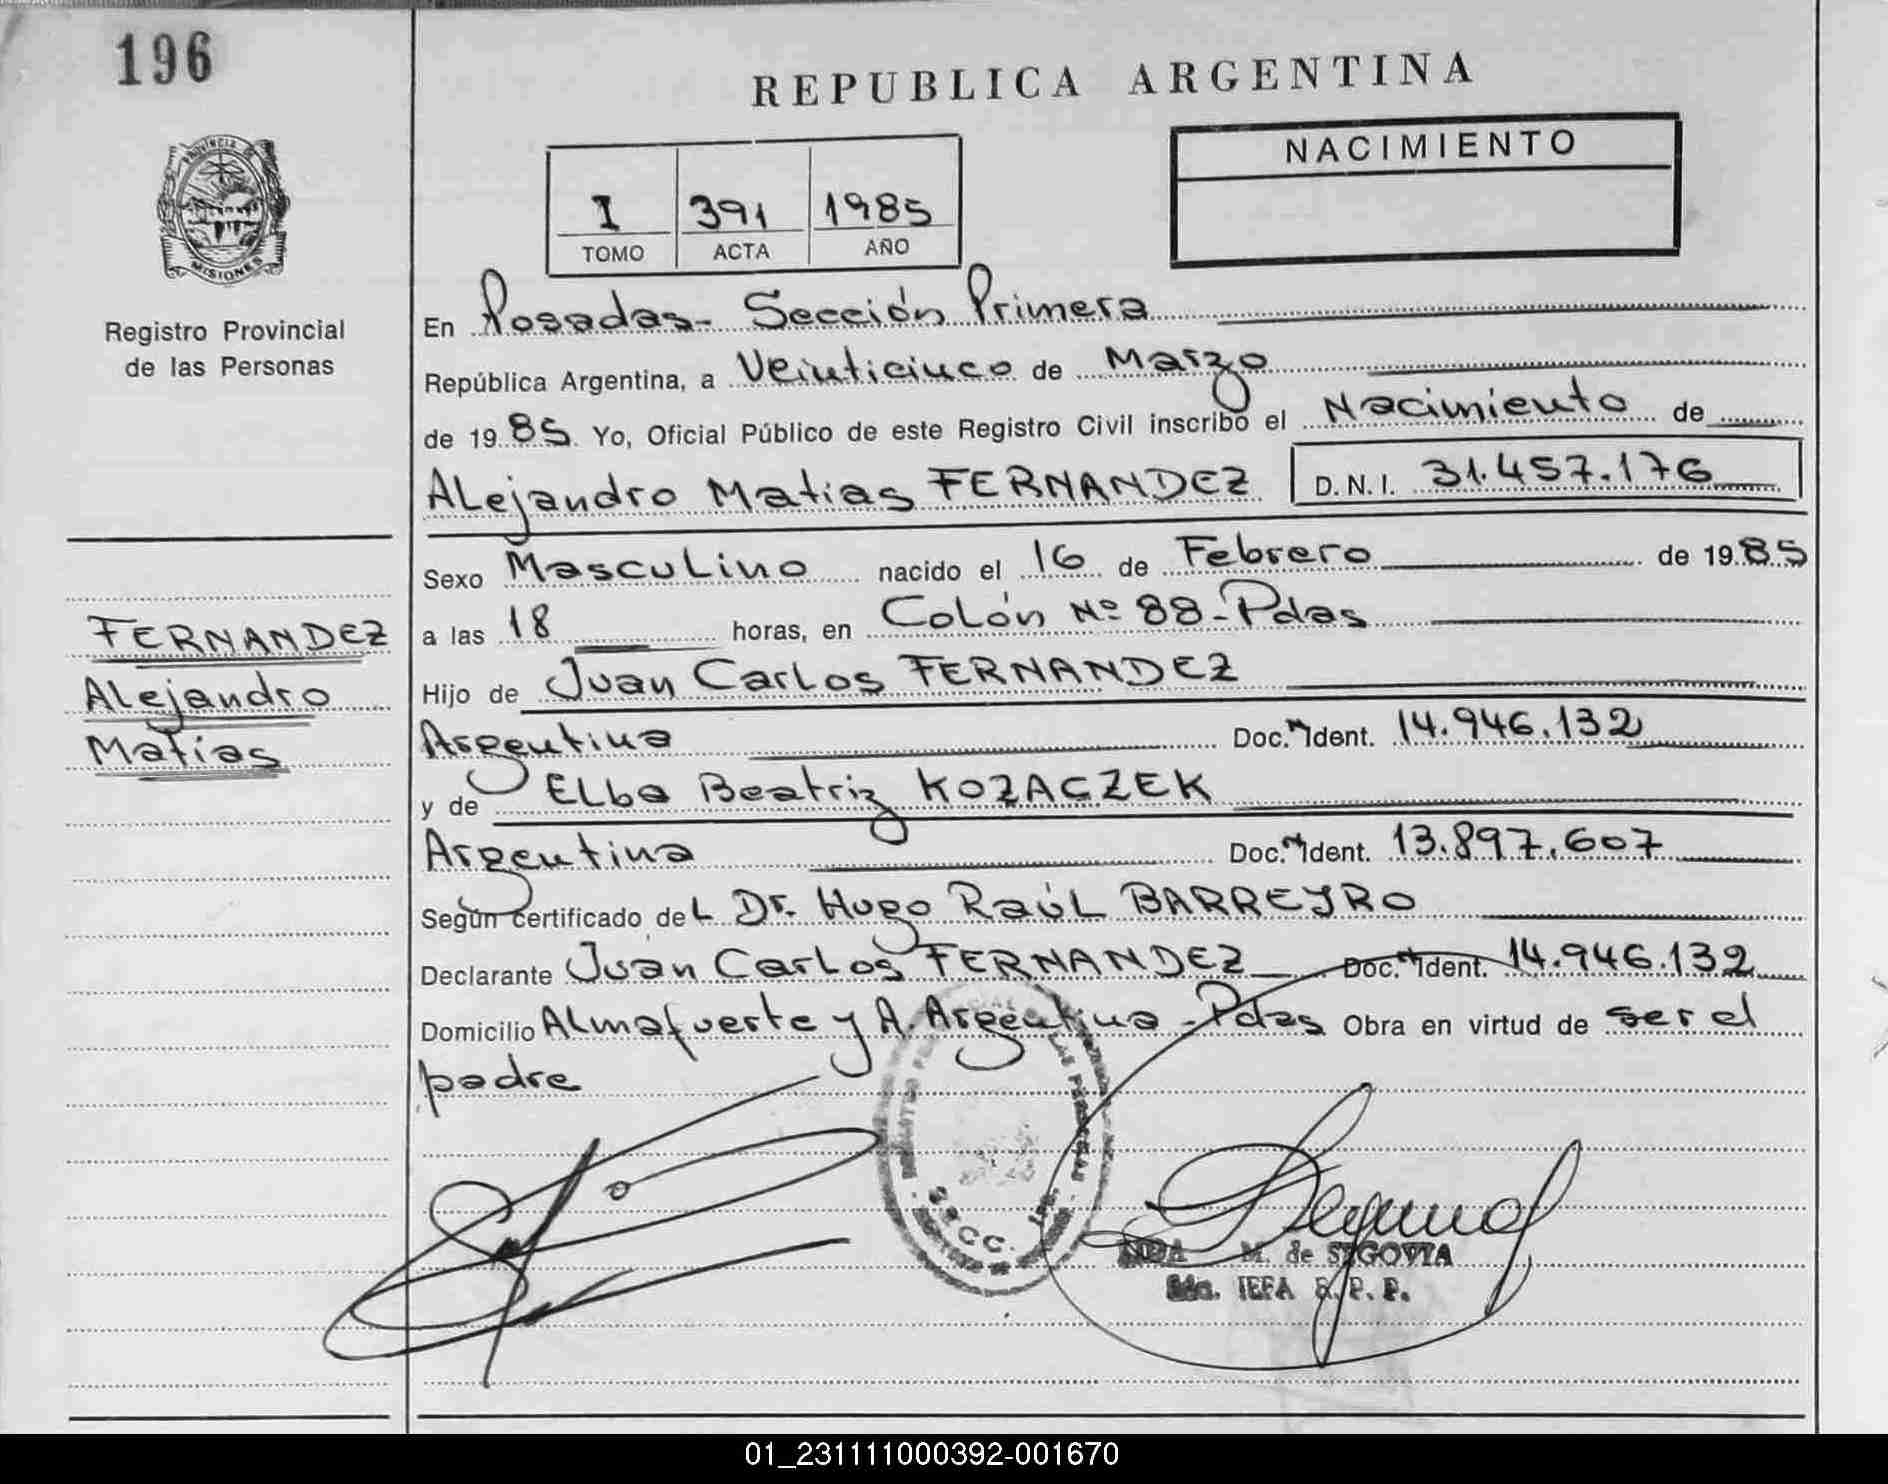 196
REPUBLICA ARGENTINA
NACIMIENTO
I 391 1985
TOMO ACTA AÑO
MISIONES
Registro Provincial
de las Personas
En Posadas- Sección Primera
República Argentina, a Veinticinco de Marzo
de 1985 Yo, Oficial Público de este Registro Civil inscribo el Nacimiento de
Alejandro Matias FERNANDEZ D.N.I. 31.457.176
Sexo Masculino nacido el 16 de Febrero de 1985
a las 18 horas, en Colón Nº 88-Pdas
Hijo de Juan Carlos FERNANDEZ
Argentina Doc. Ident. 14.946.132
y de Elba Beatriz KOZACZEK
Argentina Doc. Ident. 13.897.607
Según certificado del Dr. Hugo Raúl BARREYRO
Declarante Juan Carlos FERNANDEZ Doc. Ident. 14.946.132
Domicilio Almafuerte y A. Argentina-Pdas Obra en virtud de ser el
padre
FERNANDEZ
Alejandro
Matías
M. de SEGOVIA
R. P. P.
01_231111000392-001670